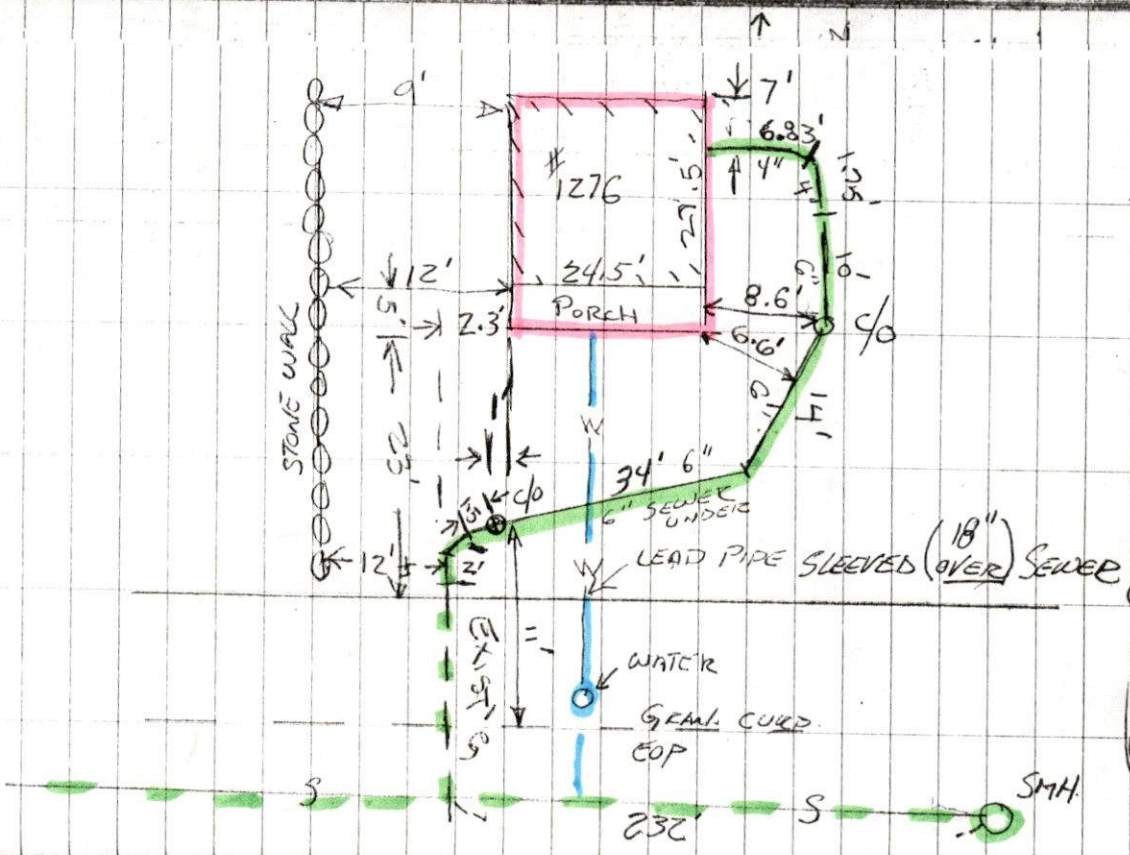 N
9'
A
7'
6.83'
4"
#1276
29.5'
1.75'
4"
10'
6"
24.5'
12'
5'
2.3'
PORCH
8.6'
C/O
6.6'
6"
14'
STONE WALL
23'
1'
W
34' 6"
C/O
1.5'
6" SEWER
UNDER
12'
2'
W
LEAD PIPE SLEEVED (18" OVER) SEWER
EXIST'G
11'
WATER
GRAN. CURB
EOP
S
232'
S
SMH.